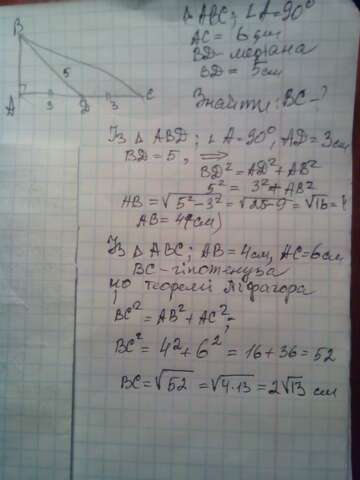 B
5
A
3
D
3
C
△ABC; ∠A=90°
AC = 6 см
BD - медіана
BD = 5см
Знайти: BC-?
Із △ABD; ∠A=90°, AD=3см
BD=5, ⇒
BD²=AD²+AB²
5²= 3²+AB²
AB=√5²-3²=√25-9=√16=4
AB=4(см)
Із △ABC; AB=4см, AC=6см
BC-гіпотенуза
по теоремі Піфагора
BC²=AB²+AC²;
BC²= 4²+6² = 16+36=52
BC=√52 =√4·13=2√13 см